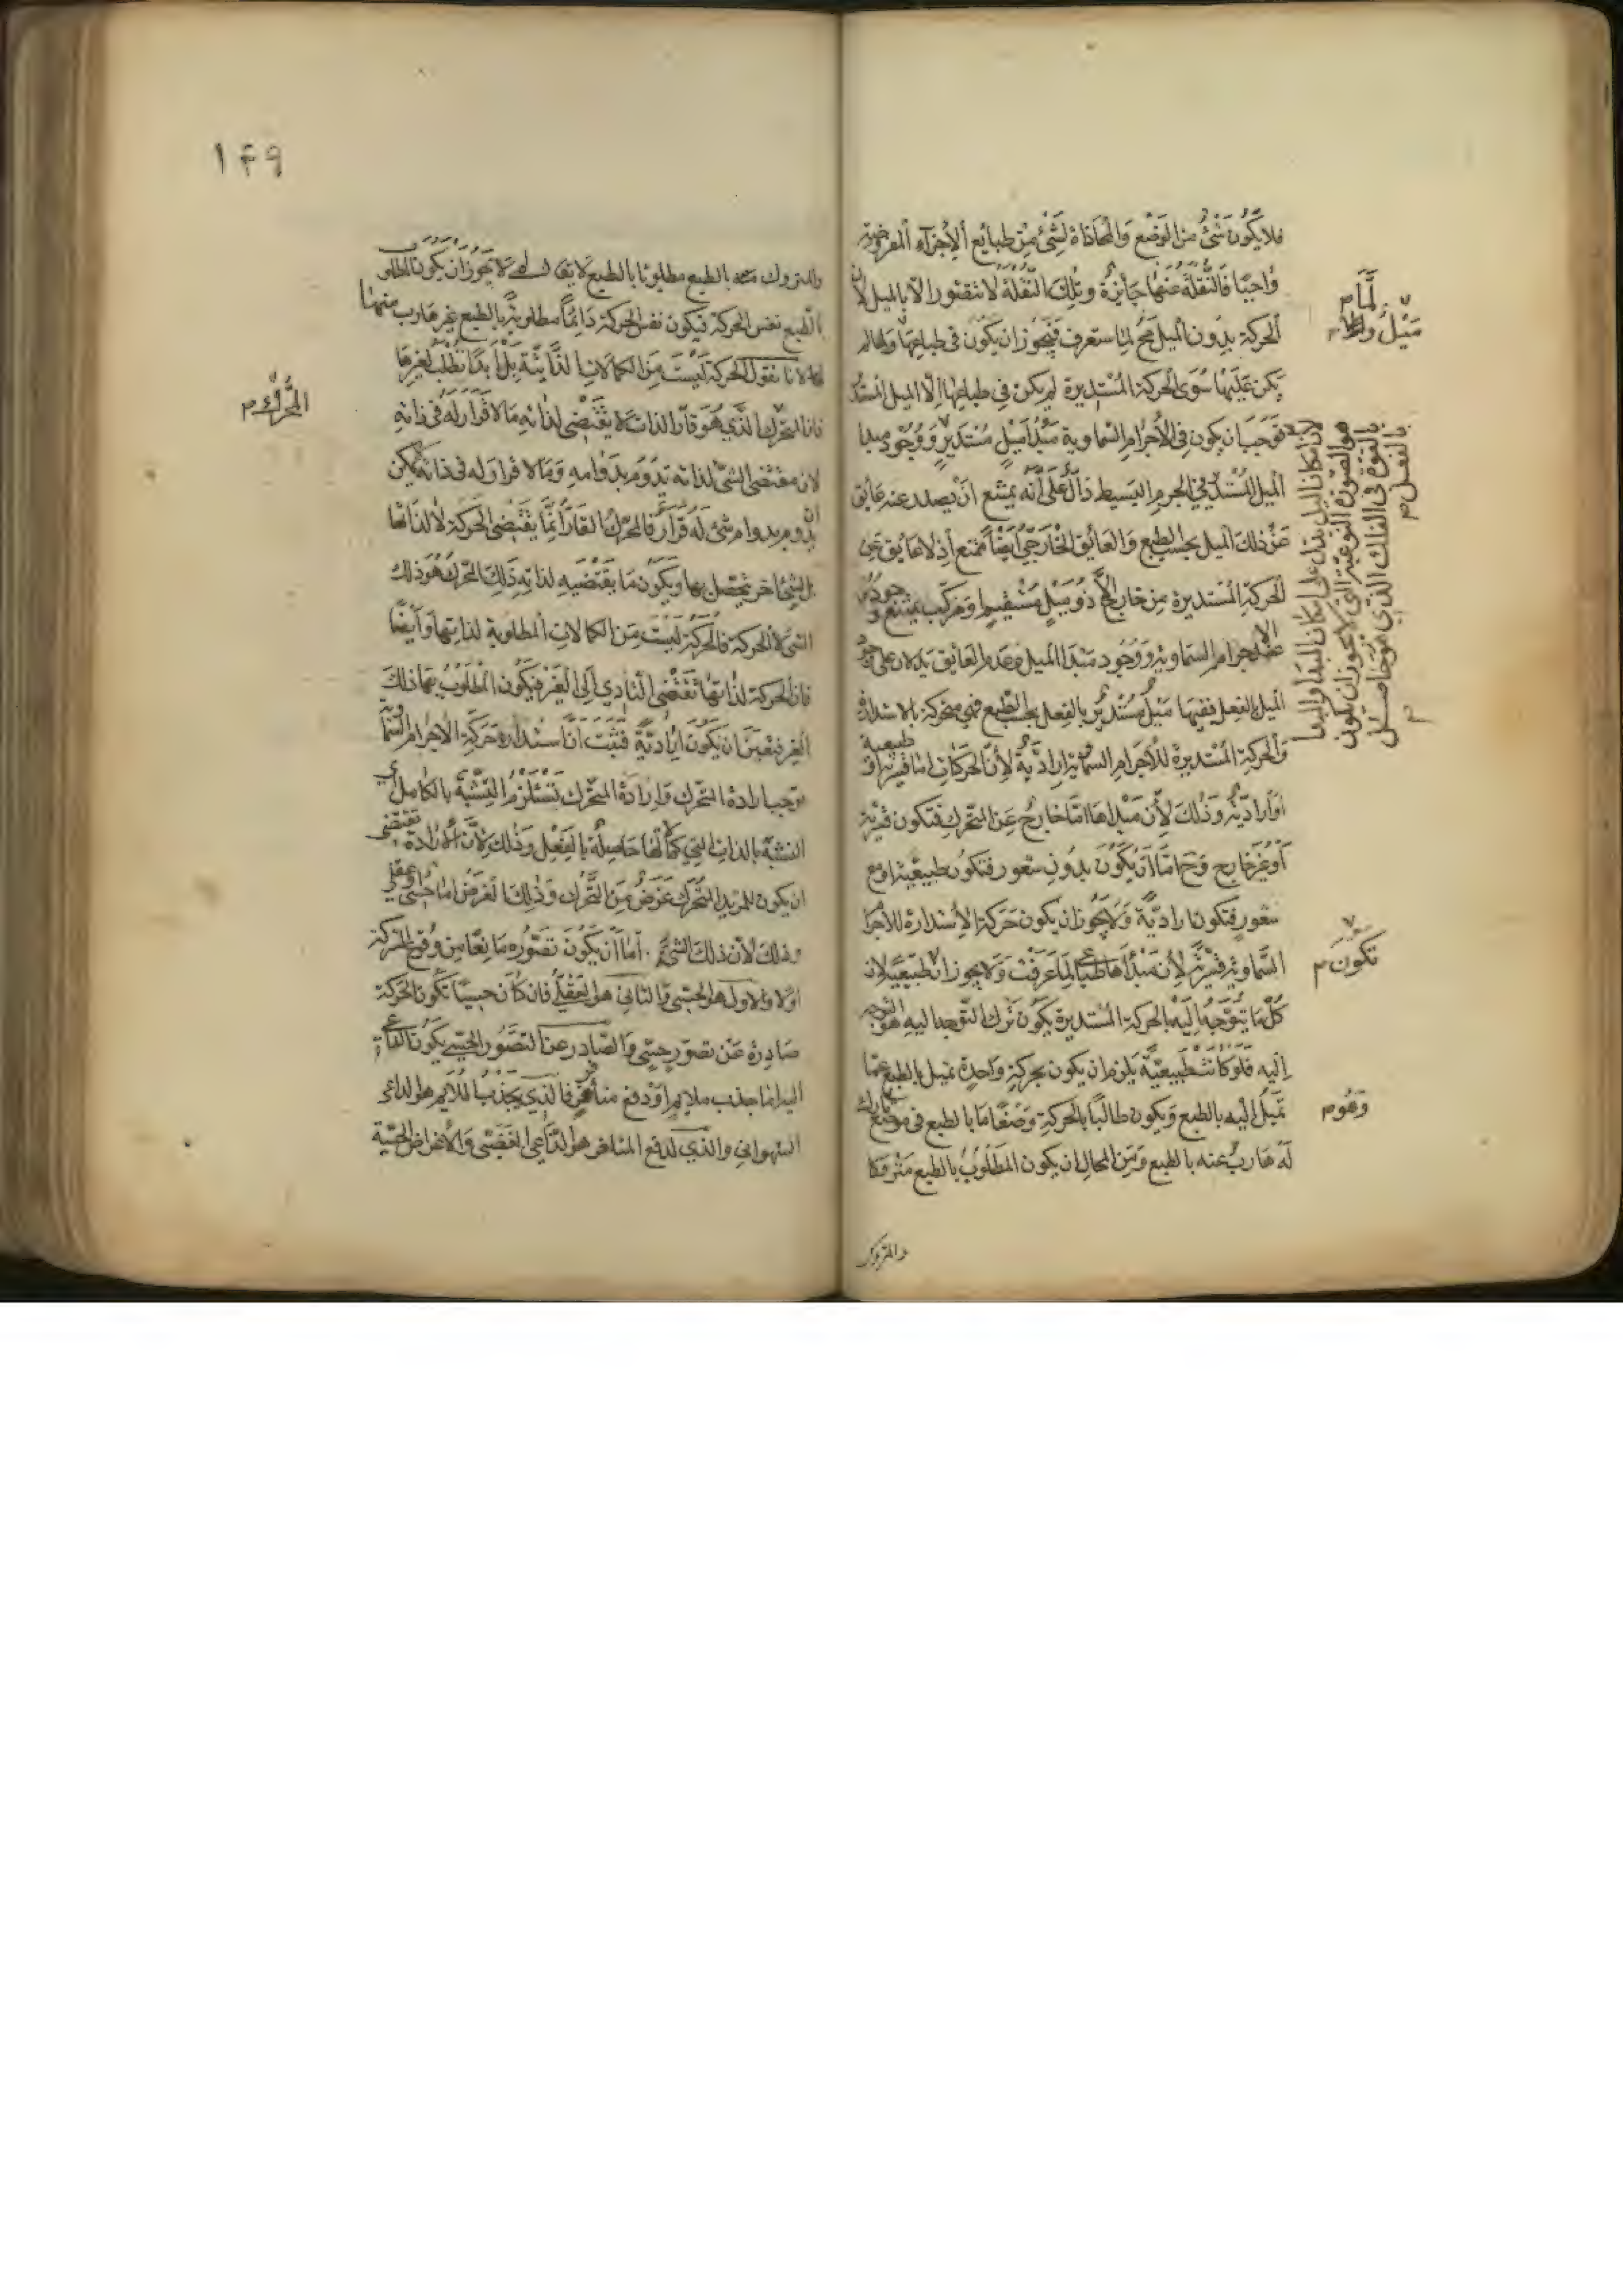 فلا يكون شئ من الوضع والمحاذاة لشئ من طبائع الأجزاء المفروضة
واجبا فالنقلة عنها جائزة وتلك النقلة لا تتصور الا بالميل لان
الحركة بدون الميل مح لما ستعرف فيجوز ان يكون في طباعها ولما لم
يكن عليها سوى الحركة المستديرة لم يكن في طباعها الا الميل المستدير
فوجب ان يكون في الأجرام السماوية مبدأ ميل مستدير ووجود مبدا
الميل المستدير في الجرم البسيط دال على أنه يمتنع ان يصدر عنه عايق
عن ذلك الميل بحسب الطبع والعايق الخارجي أيضا ممتنع إذ لا عايق عن
الحركة المستديرة من خارج الا ذو ميل مستقيم او مركب يمتنع وجوده
عند الاجرام السماوية ووجود مبدا الميل وعدم العايق يدلان على وجود
الميل بالفعل ففيها ميل مستدير بالفعل بحسب الطبع فهي متحركة بالاستدارة
والحركة المستديرة للأجرام السماوية إرادية لأن الحركات اما قسرية او طبيعية
أو إرادية وذلك لأن مبداها اما خارج عن المتحرك فتكون قسرية
أو غير خارج وح اما أن يكون بدون شعور فتكون طبيعية او مع
شعور فتكون ارادية ولا يجوز ان يكون حركة الاستدارة للأجرام
السماوية قسرية لأن مبدأها طباعي لما عرفت ولا يجوز ان طبيعية لان
كل ما يتوجه إليه بالحركة المستديرة يكون ترك التوجه اليه هو التوجه
إليه فلو كانت طبيعية يلزم ان يكون بحركة واحدة تميل بالطبع عما
تميل إليه بالطبع ويكون طالبا بالحركة وضعا ما بالطبع في موضعه تارك
له هارب عنه بالطبع ومن المحال ان يكون المطلوب بالطبع متروكا
والمتروك
لما م
ميل م
لان امكان الميل يدل على امكان المبدا والمبدا
هو الصورة النوعية التي لا يجوز ان يكون
بالقوة في الفلك الذي هو حاصل
بالفعل م
تكون م
وهو م
١٤٩
والمتروك عنه بالطبع مطلوبا بالطبع لا يقال لم لا يجوز ان يكون المطلوب
بالطبع نفس الحركة فيكون نفس الحركة دائما مطلوبة بالطبع غير هارب منها
لانا نقول الحركة ليست من الكمالات الذاتية بل أبدا تطلب لغيرها
فان المتحرك الذي هو قار الذات لا يقتضى لذاته ما لا قرار له في ذاته
لان مقتضى الشئ لذاته تدوم بدوامه وما لا قرار له في ذاته لا يمكن
ان يدوم بدوام شئ له قرار فالمحرك القار إنما يقتضى الحركة لا لذاتها
بل لشئ اخر يتحصل بها ويكون ما يقتضيه لذاته ذلك المحرك هو ذلك
الشئ لا الحركة فالحركة ليست من الكمالات المطلوبة لذاتها وأيضا
فان الحركة لذاتها تقتضى التأدي إلى الغير فيكون المطلوب بها ذلك
الغير فيتعين ان يكون ارادية فثبت أن استدارة حركة الاجرام السماوية
توجب ارادة التحرك وإرادة المتحرك تستلزم التشبه بالكامل اى
التشبه بالذات التي كمالها حاصلة بالفعل وذلك لأن الإرادة تقتضى
ان يكون للمريد المتحرك غرض من التحرك وذلك الغرض اما حسى او عقلى
وذلك لأن ذلك الشئ اما أن يكون تصوره مانعا من وقوع الشركة
اولا والاول هو الحسى والثاني هو العقلى فان كان حسيا تكون الحركة
صادرة عن تصور حسى والصادر عن التصور الحسي يكون الداعي
اليه اما جذب ملايم أو دفع منافر فالذي يجذب الملايم هو الداعى
الشهواني والذي لدفع المنافر هو الداعي الغضبى والأغراض الحسية
المحرك م